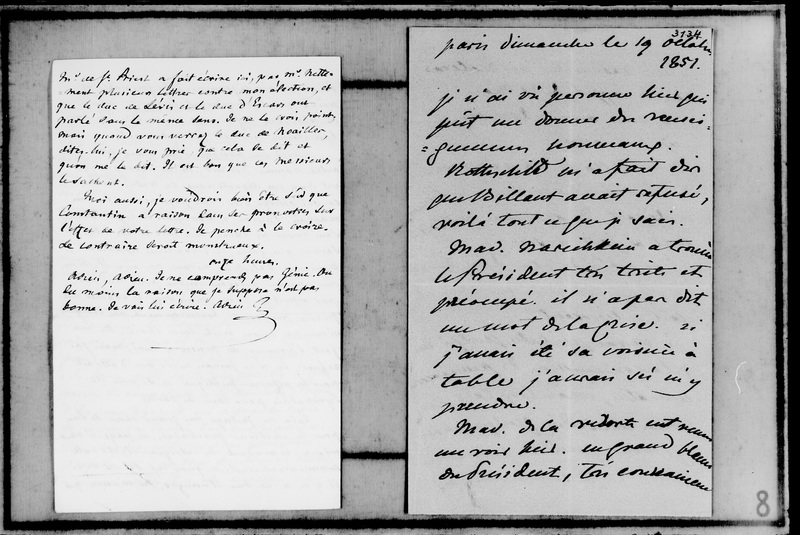 Mr. de St. Priest a fait écrire ici, par Mr. Nette-
ment plusieurs lettres contre mon élection, et
que le duc de Lévis et le duc d'Escars ont
parlé dans le même sens. Je ne le crois point,
mais quand vous verrez le duc de Noailles,
dites-lui, je vous prie, que cela se dit et
qu'on me le dit. Il est bon que ces messieurs
le sachent.
Moi aussi, je voudrois bien être sûr que
Constantin a raison dans ses pronostics sur
l'effet de votre lettre. Je penche à le croire.
Le contraire seroit monstrueux.
onze heures.
Adieu, Adieu. Je ne comprends pas Génie. Ou
du moins la raison que je suppose n'est pas
bonne. Je vais lui écrire. Adieu
3134
paris dimanche le 19 octobre
1851.
je n'ai vu personne hier qui
put me donner des rensei-
gnemens nouveaux.
Rothschild m'a fait dire
que Billaut avait refusé,
voilà tout ce que je sais.
Mad. Narishkin a trouvé
le Président très triste et
préoccupé. il n'a pas dit
un mot de la crise. si
j'avais été sa voisine à
table j'aurais su m'y
prendre.
Mad. de la redorte est venue
me voir hier. en grand blame
du Président, très
8